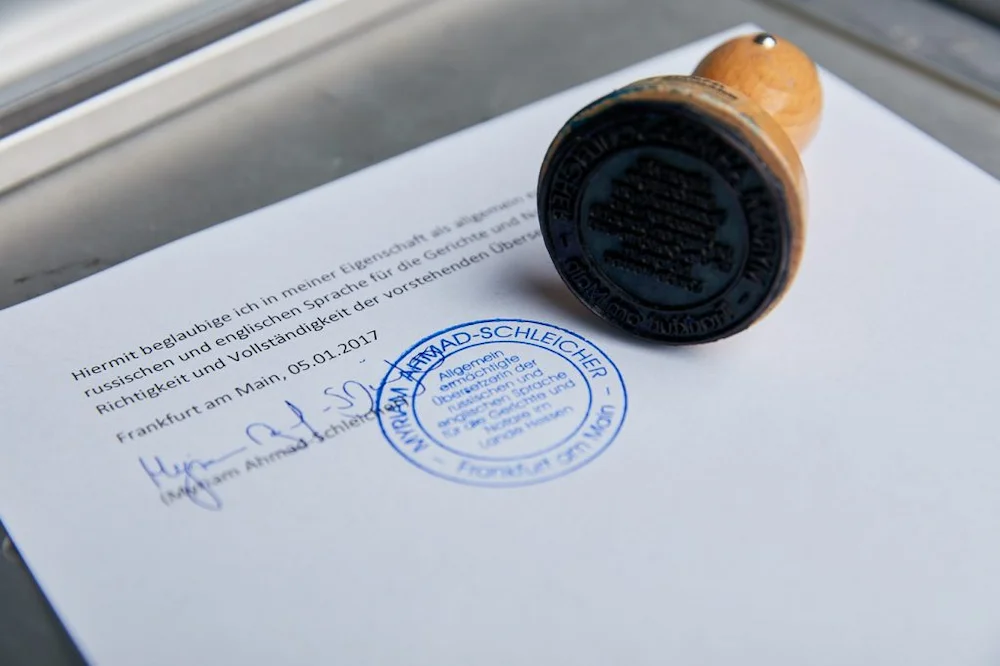 Hiermit beglaubige ich in meiner Eigenschaft als allgemein
russischen und englischen Sprache für die Gerichte und
Richtigkeit und Vollständigkeit der vorstehenden
Frankfurt am Main, 05.01.2017
(Myriam Ahmad-Schleicher
MYRIAM AHMAD-SCHLEICHER -
Allgemein
ermächtigte
Übersetzerin der
russischen und
englischen Sprache
für die Gerichte und
Notare im
Lande Hessen
- Frankfurt am Main -